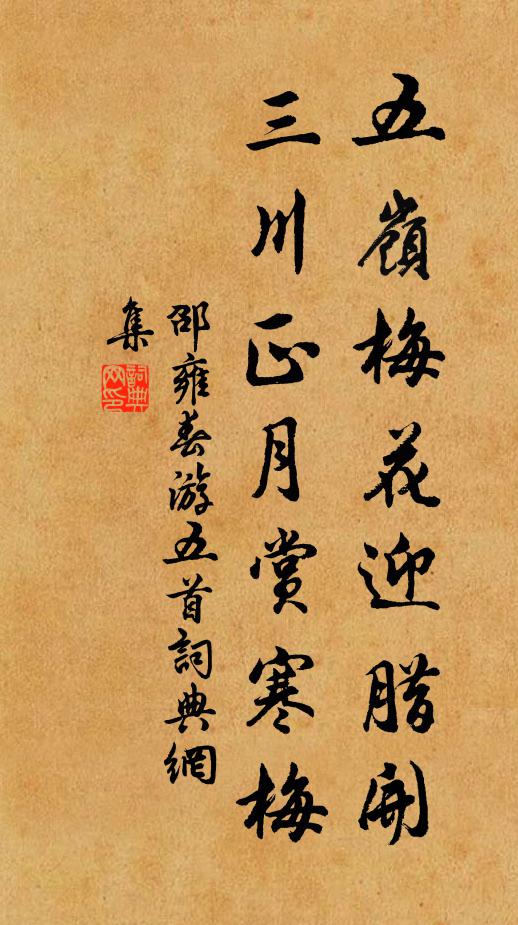 五嶺梅花迎腊開
三川正月賞寒梅
邵雍春游五首詞典網
集
詞典網印